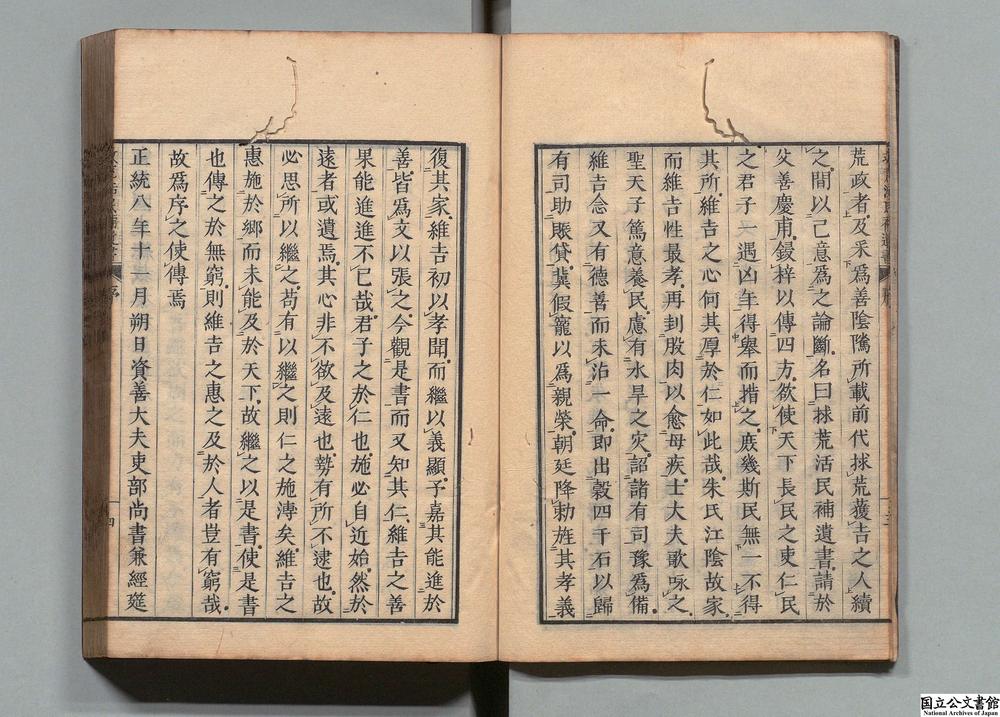 荒政者及采爲善陰隲所載前代捄荒獲吉之人續
之間以己意爲之論斷名曰捄荒活民補遺書請於
父善慶甫鋟梓以傳四方欲使天下長民之吏仁民
之君子一遇凶年得舉而措之庶幾斯民無一不得
其所維吉之心何其厚於仁如此哉朱氏江陰故家
而維吉性最孝再刲股肉以愈母疾士大夫歌咏之
聖天子篤意養民慮有水旱之灾詔諸有司豫爲備
維吉念父有德善而未沾一命即出穀四千石以歸
有司助賑貸冀假寵以爲親榮朝廷降勅旌其孝義
復其家維吉初以孝聞而繼以義顯予嘉其能進於
善皆爲文以張之今觀是書而又知其仁維吉之善
果能進進不已哉君子之於仁也施必自近始然於
遠者或遺焉其心非不欲及遠也勢有所不逮也故
必思所以繼之苟有以繼之則仁之施溥矣維吉之
惠施於鄉而未能及於天下故繼之以是書使是書
也傳之於無窮則維吉之惠之及於人者豈有窮哉
故爲序之使傳焉
正統八年十一月朔日資善大夫吏部尚書兼經筵
四
国立公文書館
National Archives of Japan